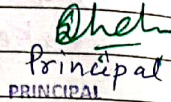 Principal
PRINCIPAL